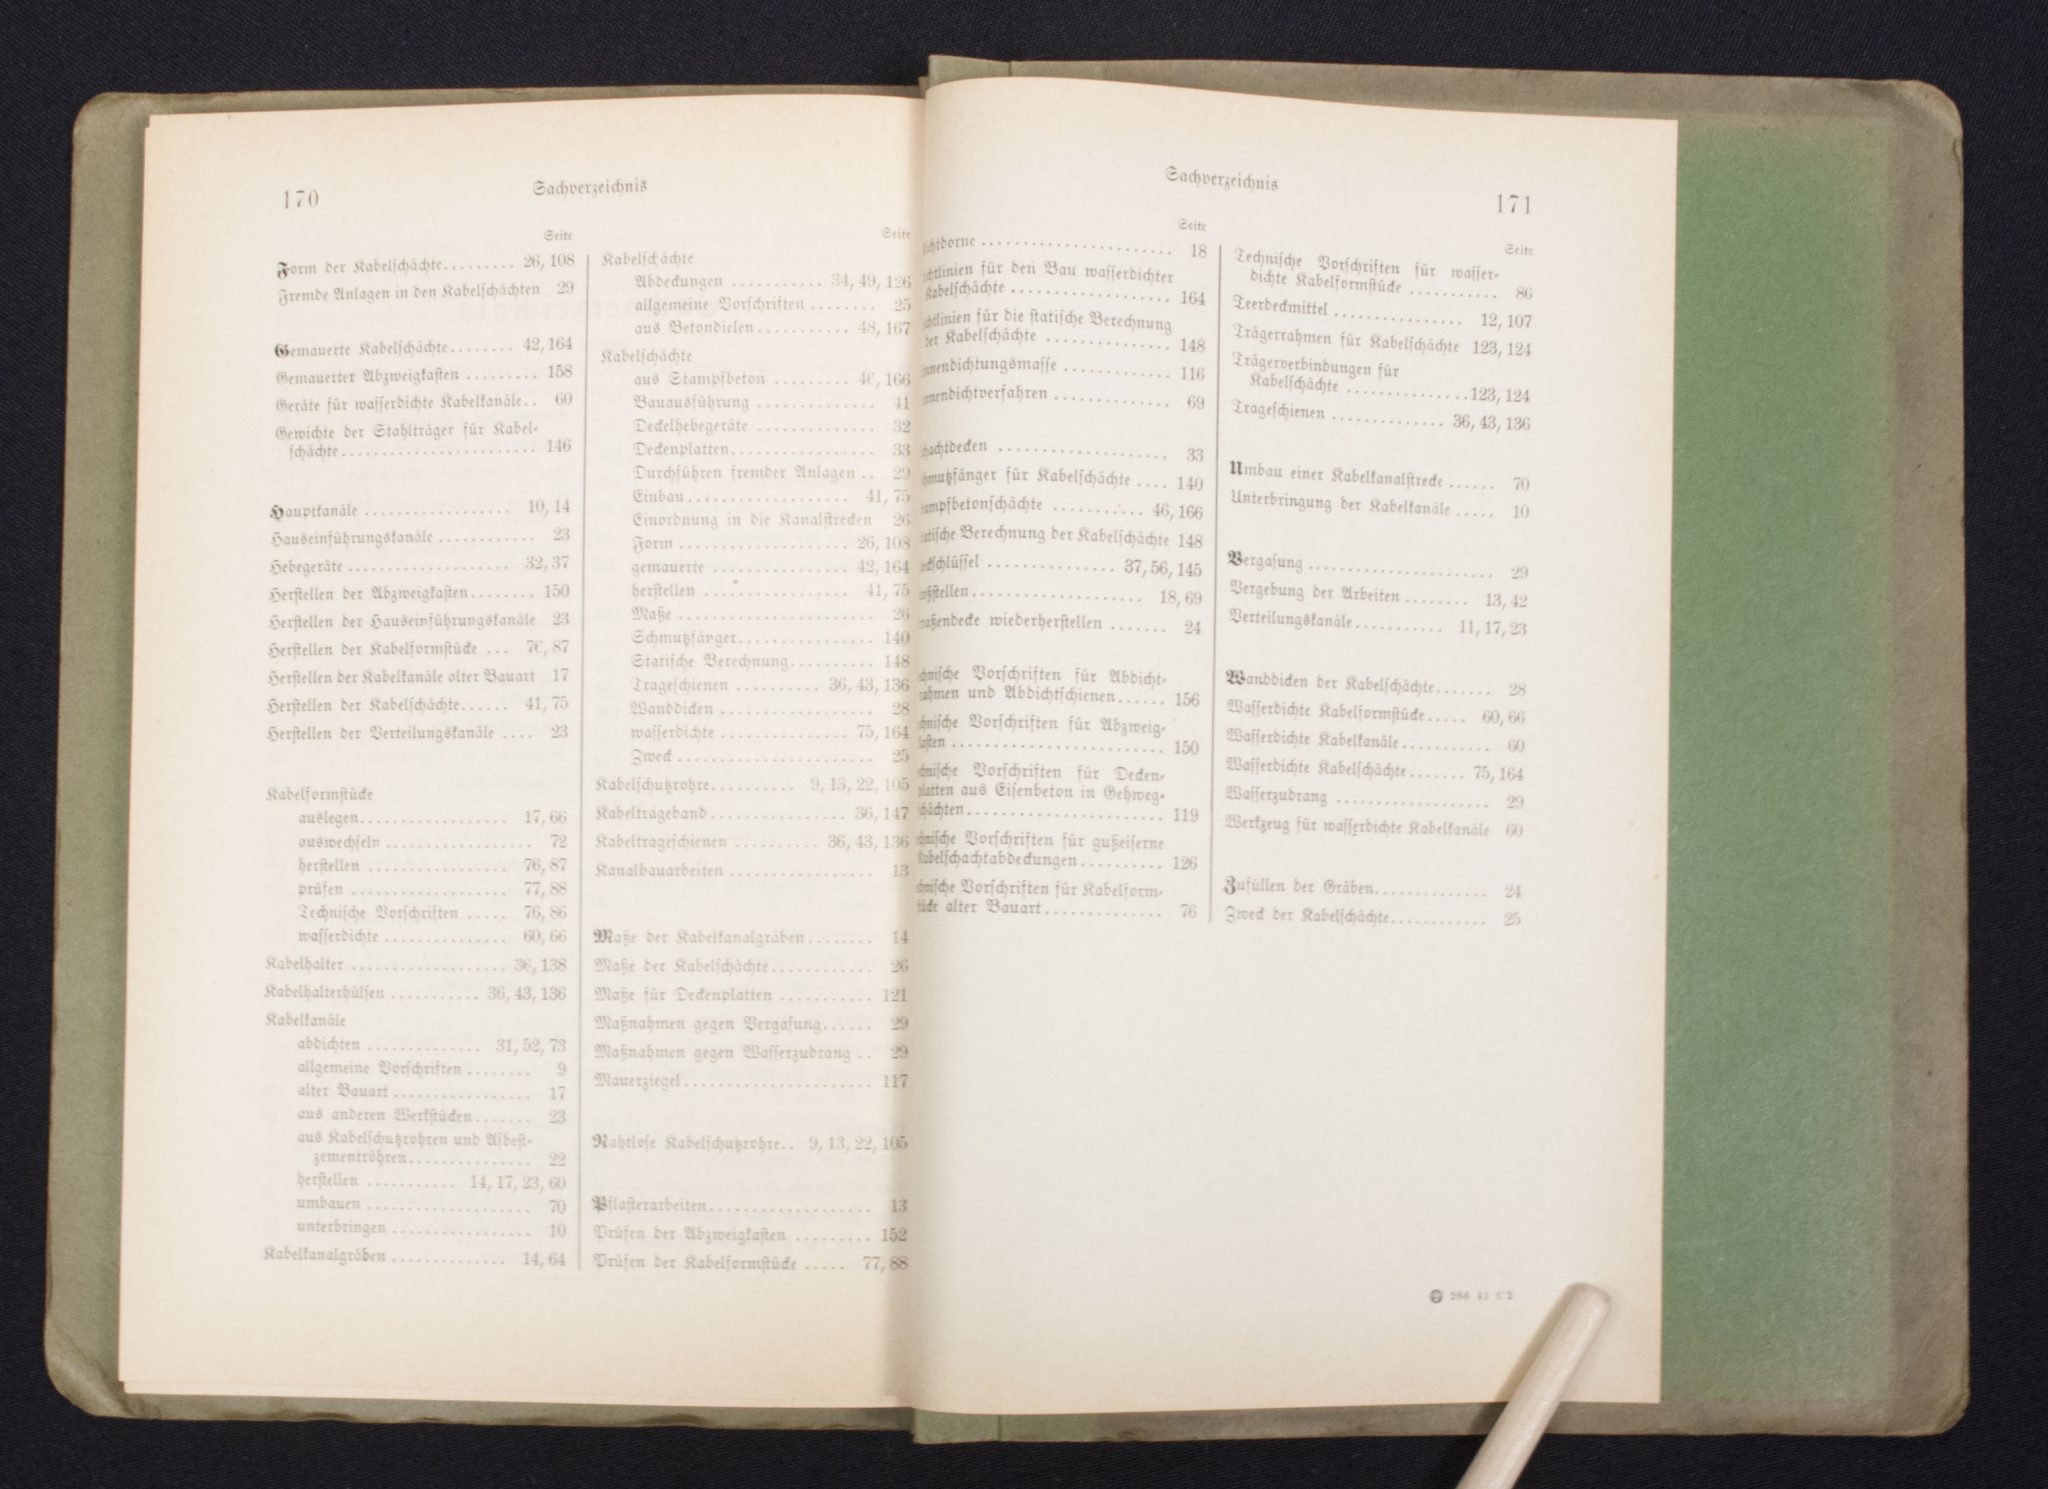 170
Sachverzeichnis
Seite
Form der Kabelschächte......... 26, 108
Fremde Anlagen in den Kabelschächten 29
Gemauerte Kabelschächte........ 42, 164
Gemauerter Abzweigkasten ......... 158
Geräte für wasserdichte Kabelkanäle.. 60
Gewichte der Stahlträger für Kabel-
schächte........................ 146
Hauptkanäle .................. 10, 14
Hauseinführungskanäle ............ 23
Hebegeräte .................... 32, 37
Herstellen der Abzweigkasten........ 150
Herstellen der Hauseinführungskanäle 23
Herstellen der Kabelformstücke ... 76, 87
Herstellen der Kabelkanäle alter Bauart 17
Herstellen der Kabelschächte...... 41, 75
Herstellen der Verteilungskanäle .... 23
Kabelformstücke
auslegen.................. 17, 66
auswechseln .................. 72
herstellen ................. 76, 87
prüfen ................... 77, 88
Technische Vorschriften ..... 76, 86
wasserdichte ............... 60, 66
Kabelhalter ................... 36, 138
Kabelhalterhülsen ........... 36, 43, 136
Kabelkanäle
abdichten .............. 31, 52, 73
allgemeine Vorschriften ........ 9
alter Bauart ................. 17
aus anderen Werkstücken....... 23
aus Kabelschutzrohren und Asbest-
zementröhren............... 22
herstellen ........... 14, 17, 23, 60
umbauen .................... 70
unterbringen ................. 10
Kabelkanalgräben .............. 14, 64
Seite
Kabelschächte
Abdeckungen ........... 34, 49, 126
allgemeine Vorschriften ........ 25
aus Betondielen........... 48, 167
Kabelschächte
aus Stampfbeton ......... 46, 166
Bauausführung .............. 41
Deckelhebegeräte .............. 32
Deckenplatten................. 33
Durchführen fremder Anlagen .. 29
Einbau.................... 41, 75
Einordnung in die Kanalstrecken 26
Form .................... 26, 108
gemauerte ................ 42, 164
herstellen ................. 41, 75
Maße ....................... 26
Schmutzfänger................ 140
Statische Berechnung.......... 148
Trageschienen .......... 36, 43, 136
Wanddicken .................. 28
wasserdichte ............... 75, 164
Zweck ....................... 25
Kabelschutzrohre.......... 9, 13, 22, 105
Kabeltrageband................ 36, 147
Kabeltrageschienen .......... 36, 43, 136
Kanalbauarbeiten ................. 13
Maße der Kabelkanalgräben........ 14
Maße der Kabelschächte............ 26
Maße für Deckenplatten ........... 121
Maßnahmen gegen Vergasung...... 29
Maßnahmen gegen Wasserzudrang .. 29
Mauerziegel...................... 117
Nahtlose Kabelschutzrohre.. 9, 13, 22, 105
Pflasterarbeiten................... 13
Prüfen der Abzweigkasten ......... 152
Prüfen der Kabelformstücke ..... 77, 88
Sachverzeichnis
171
Seite
ichtdorne ....................... 18
ichtlinien für den Bau wasserdichter
Kabelschächte ................... 164
ichtlinien für die statische Berechnung
der Kabelschächte ............... 148
innendichtungsmasse ............. 116
innendichtverfahren .............. 69
chachtdecken .................... 33
chmutzfänger für Kabelschächte .... 140
tampfbetonschächte ........... 46, 166
tatische Berechnung der Kabelschächte 148
eckschlüssel ............... 37, 56, 145
toßstellen.................... 18, 69
raßendecke wiederherstellen ....... 24
chnische Vorschriften für Abdicht-
rahmen und Abdichtschienen...... 156
chnische Vorschriften für Abzweig-
kasten .......................... 150
chnische Vorschriften für Decken-
platten aus Eisenbeton in Gehweg-
schächten........................ 119
chnische Vorschriften für gußeiserne
Kabelschachtabdeckungen.......... 126
chnische Vorschriften für Kabelform-
stücke alter Bauart.............. 76
Seite
Technische Vorschriften für wasser-
dichte Kabelformstücke ........... 86
Teerdeckmittel ................ 12, 107
Trägerrahmen für Kabelschächte 123, 124
Trägerverbindungen für
Kabelschächte ...............123, 124
Trageschienen .............. 36, 43, 136
Umbau einer Kabelkanalstrecke ...... 70
Unterbringung der Kabelkanäle ..... 10
Vergasung ....................... 29
Vergebung der Arbeiten ........ 13, 42
Verteilungskanäle........... 11, 17, 23
Wanddicken der Kabelschächte....... 28
Wasserdichte Kabelformstücke..... 60, 66
Wasserdichte Kabelkanäle........... 60
Wasserdichte Kabelschächte....... 75, 164
Wasserzudrang ................... 29
Werkzeug für wasserdichte Kabelkanäle 60
Zufüllen der Gräben.............. 24
Zweck der Kabelschächte............ 25
286 41 C2